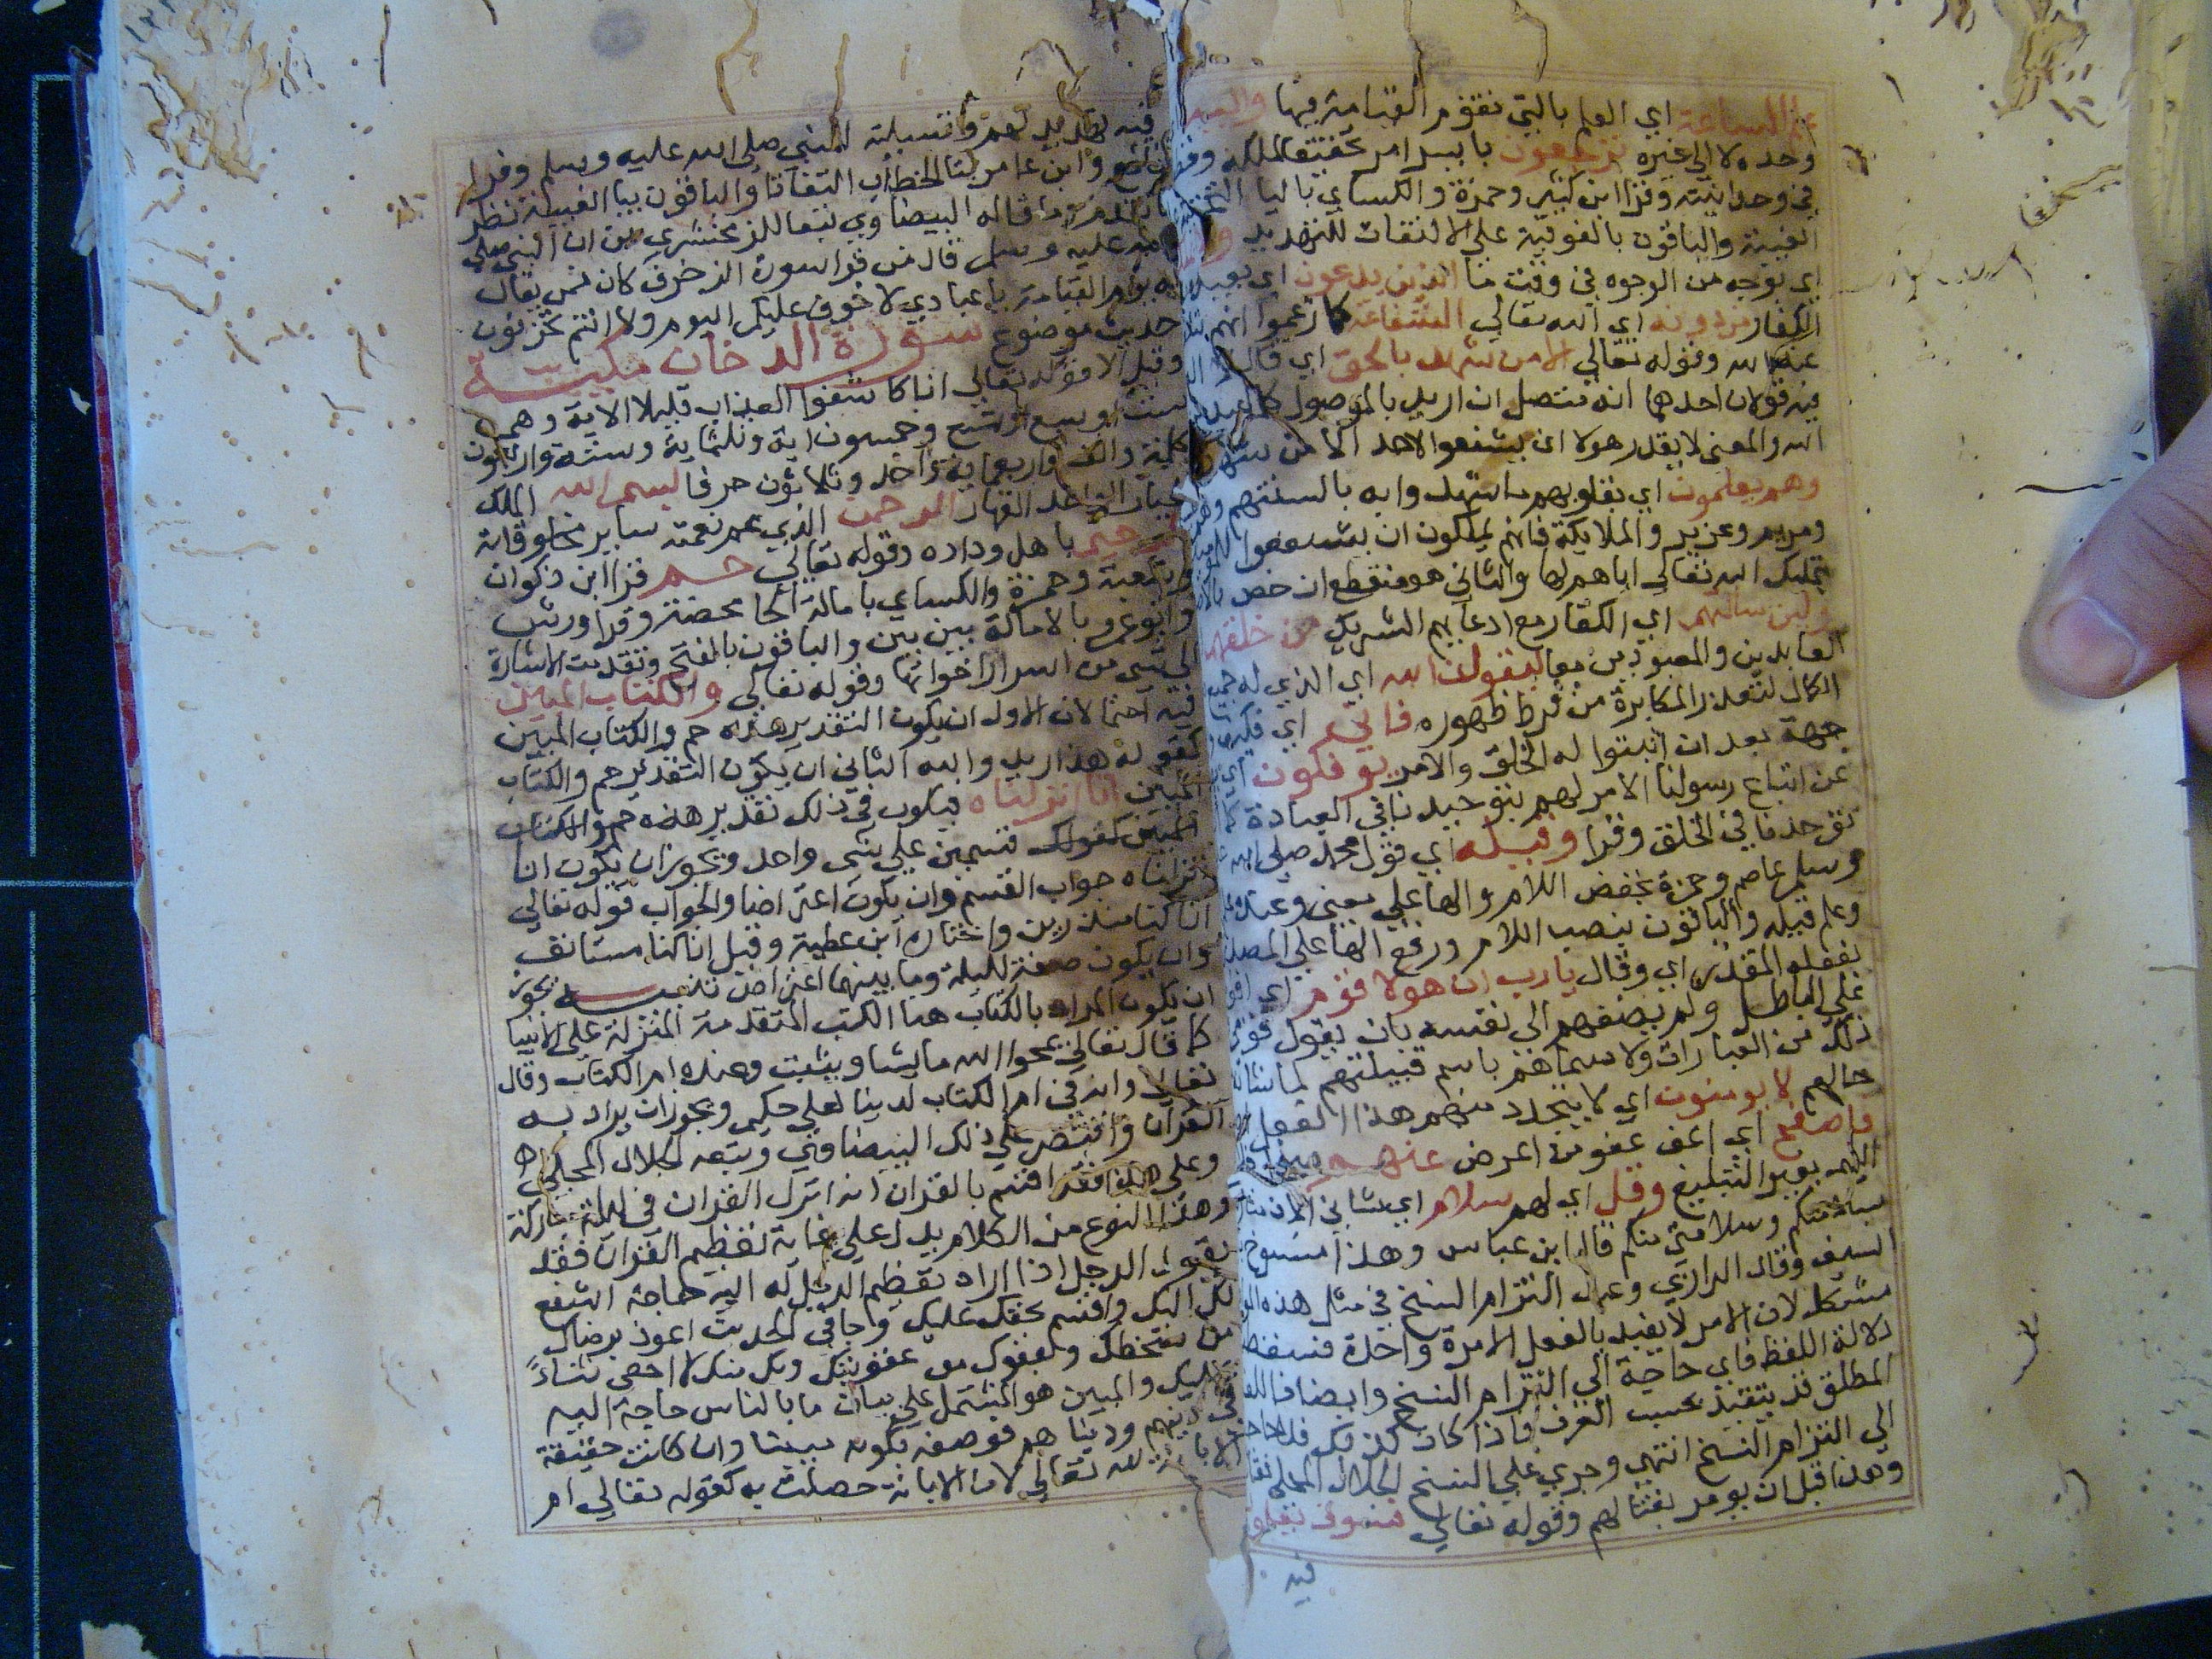 علم الساعة اي العلم بالتي تقوم القيامة فيها واليه
وحده لا الي غيره ترجعون بايسر امر تحقيقا لملكه وفطرا
في وحدانيته وقرا ابن كثير وحمزة والكساي باليا التحتية
الغيبة والباقون بالفوقية علي الالتفات للتهديد ولا
اي بوجه من الوجوه في وقت ما الذين يدعون اي يعبد
الكفار من دونه اي الله تعالي الشفاعة كما زعموا انهم
عند الله وقوله تعالي الا من شهد بالحق اي قال لا اله
فيه قولان احدهما انه متصل ان اريد بالموصول كل ما عبد
الله والمعني لا يقدر هولا ان يشفعوا لاحد الا من شهد
وهم يعلمون اي بقلوبهم ما شهدوا به بالسنتهم وهم
ومريم وعزير والملايكة فانهم يملكون ان يشفعوا للمو
بتمليك الله تعالي اياهم لها والثاني هو منقطع ان خص بالا
ولين سالتهم اي الكفار مع ادعايهم الشريك من خلقهم
العابدين والمعبودين معا ليقولن الله اي الذي له جميع
الكمال لتعذر المكابرة من فرط ظهوره فاني اي فكيف
جهة بعد ان اثبتوا له الخلق والامر يوفكون اي
عن اتباع رسولنا الامر لهم بتوحيدنا في العبادة كما
توحدنا في الخلق وقرا وقيله اي قول محمد صلي الله
وسلم عاصم وحمزة بخفض اللام والها علي معني وعنده
وعلم قيله والباقون بنصب اللام ورفع الها علي المصدر
بفعله المقدر اي وقال يارب ان هولا قوم اي
علي الباطل ولم يضفهم الي نفسه بان يقول قومي
ذلك من العبارات ولا سماهم باسم قبيلتهم لما ساءه
حالهم لا يومنون اي لا يتجدد منهم هذا الفعل
فاصفح اي اعف عفو من اعرض عنهم
اليهم بغير التبليغ وقل اي لهم سلام اي شاني الان
بسلامتكم وسلامتي منكم قال ابن عباس وهذا منسوخ
السيف وقال الرازي وعندي التزام النسخ في مثل هذه
مشكل لان الامر لا يفيد بالفعل الا مرة واحدة فسقط
دلالة اللفظ فاي حاجة الي التزام النسخ وايضا فاللفظ
المطلق قد يتقيد بحسب العرف فاذا كان كذلك فلا حاجة
الي التزام النسخ انتهي وجري علي النسخ الجلال المحلي
وهذا قبل ان يومر بقتالهم وقوله تعالي فسوف تعلمون
فيه
فيه تهديد لهم وتسلية للنبي صلي الله عليه وسلم وقرا
نافع وابن عامر بتا الخطاب التفاتا والباقون بيا الغيبة نظرا
لما تقدم وما قاله البيضاوي تبعا للزمخشري من ان النبي صلي
الله عليه وسلم قال من قرا سورة الزخرف كان ممن يقال
له يوم القيامة يا عبادي لا خوف عليكم اليوم ولا انتم تحزنون
حديث موضوع سورة الدخان مكية
وقيل الا قوله تعالي انا كاشفوا العذاب قليلا الاية وهي
ست او سبع او تسع وخمسون اية وثلثماية وستة واربعون
كلمة والف واربعماية واحد وثلاثون حرفا بسم الله الملك
الجبار الواحد القهار الرحمن الذي عم نعمته ساير مخلوقاته
الرحيم باهل وداده وقوله تعالي حم قرا ابن ذكوان
وشعبة وحمزة والكساي بامالة الحا محضة وقرا ورش
وابو عمرو بالامالة بين بين والباقون بالفتح وتقدمت الاشارة
الي شي من اسرار اخواتها وقوله تعالي والكتاب المبين
فيه احتمالان الاول ان يكون التقدير هذه حم والكتاب المبين
كقوله هذا زيد والله الثاني ان يكون التقدير حم والكتاب
المبين انا انزلناه فيكون في ذلك تقدير هذه حم والكتاب
المبين كقولك قسمين علي شي واحد ويجوز ان يكون انا
انزلناه جواب القسم وان يكون اعتراضا والجواب قوله تعالي
انا كنا منذرين واختاره ابن عطية وقيل انا كنا مستانف
وان يكون صفة لليلة وما بينهما اعتراض تنبيه يجوز
ان يكون المراد بالكتاب هنا الكتب المتقدمة المنزلة علي الانبيا
كما قال تعالي يمحوا الله ما يشا ويثبت وعنده ام الكتاب وقال
تعالي وانه في ام الكتاب لدينا لعلي حكيم ويجوز ان يراد به
القران واقتصر علي ذلك البيضاوي وتبعه الجلال المحلي
وعلي هذا فقد اقسم بالقران انه انزل القران في ليلة مباركة
وهذا النوع من الكلام يدل علي غاية تعظيم القران فقد
يقول الرجل اذا اراد تعظيم الرجل له اليه حاجة اتشفع
بك اليك واقسم بحقك عليك وجا في الحديث اعوذ برضاك
من سخطك وبعفوك من عقوبتك وبك منك لا احصي ثناءً
عليك والمبين هو المشتمل علي بيان ما بالناس حاجة اليه
في دينهم ودنياهم فوصفه بكونه مبينا وان كانت حقيقة
الابانة لله تعالي لان الابانة حصلت به كقوله تعالي ام